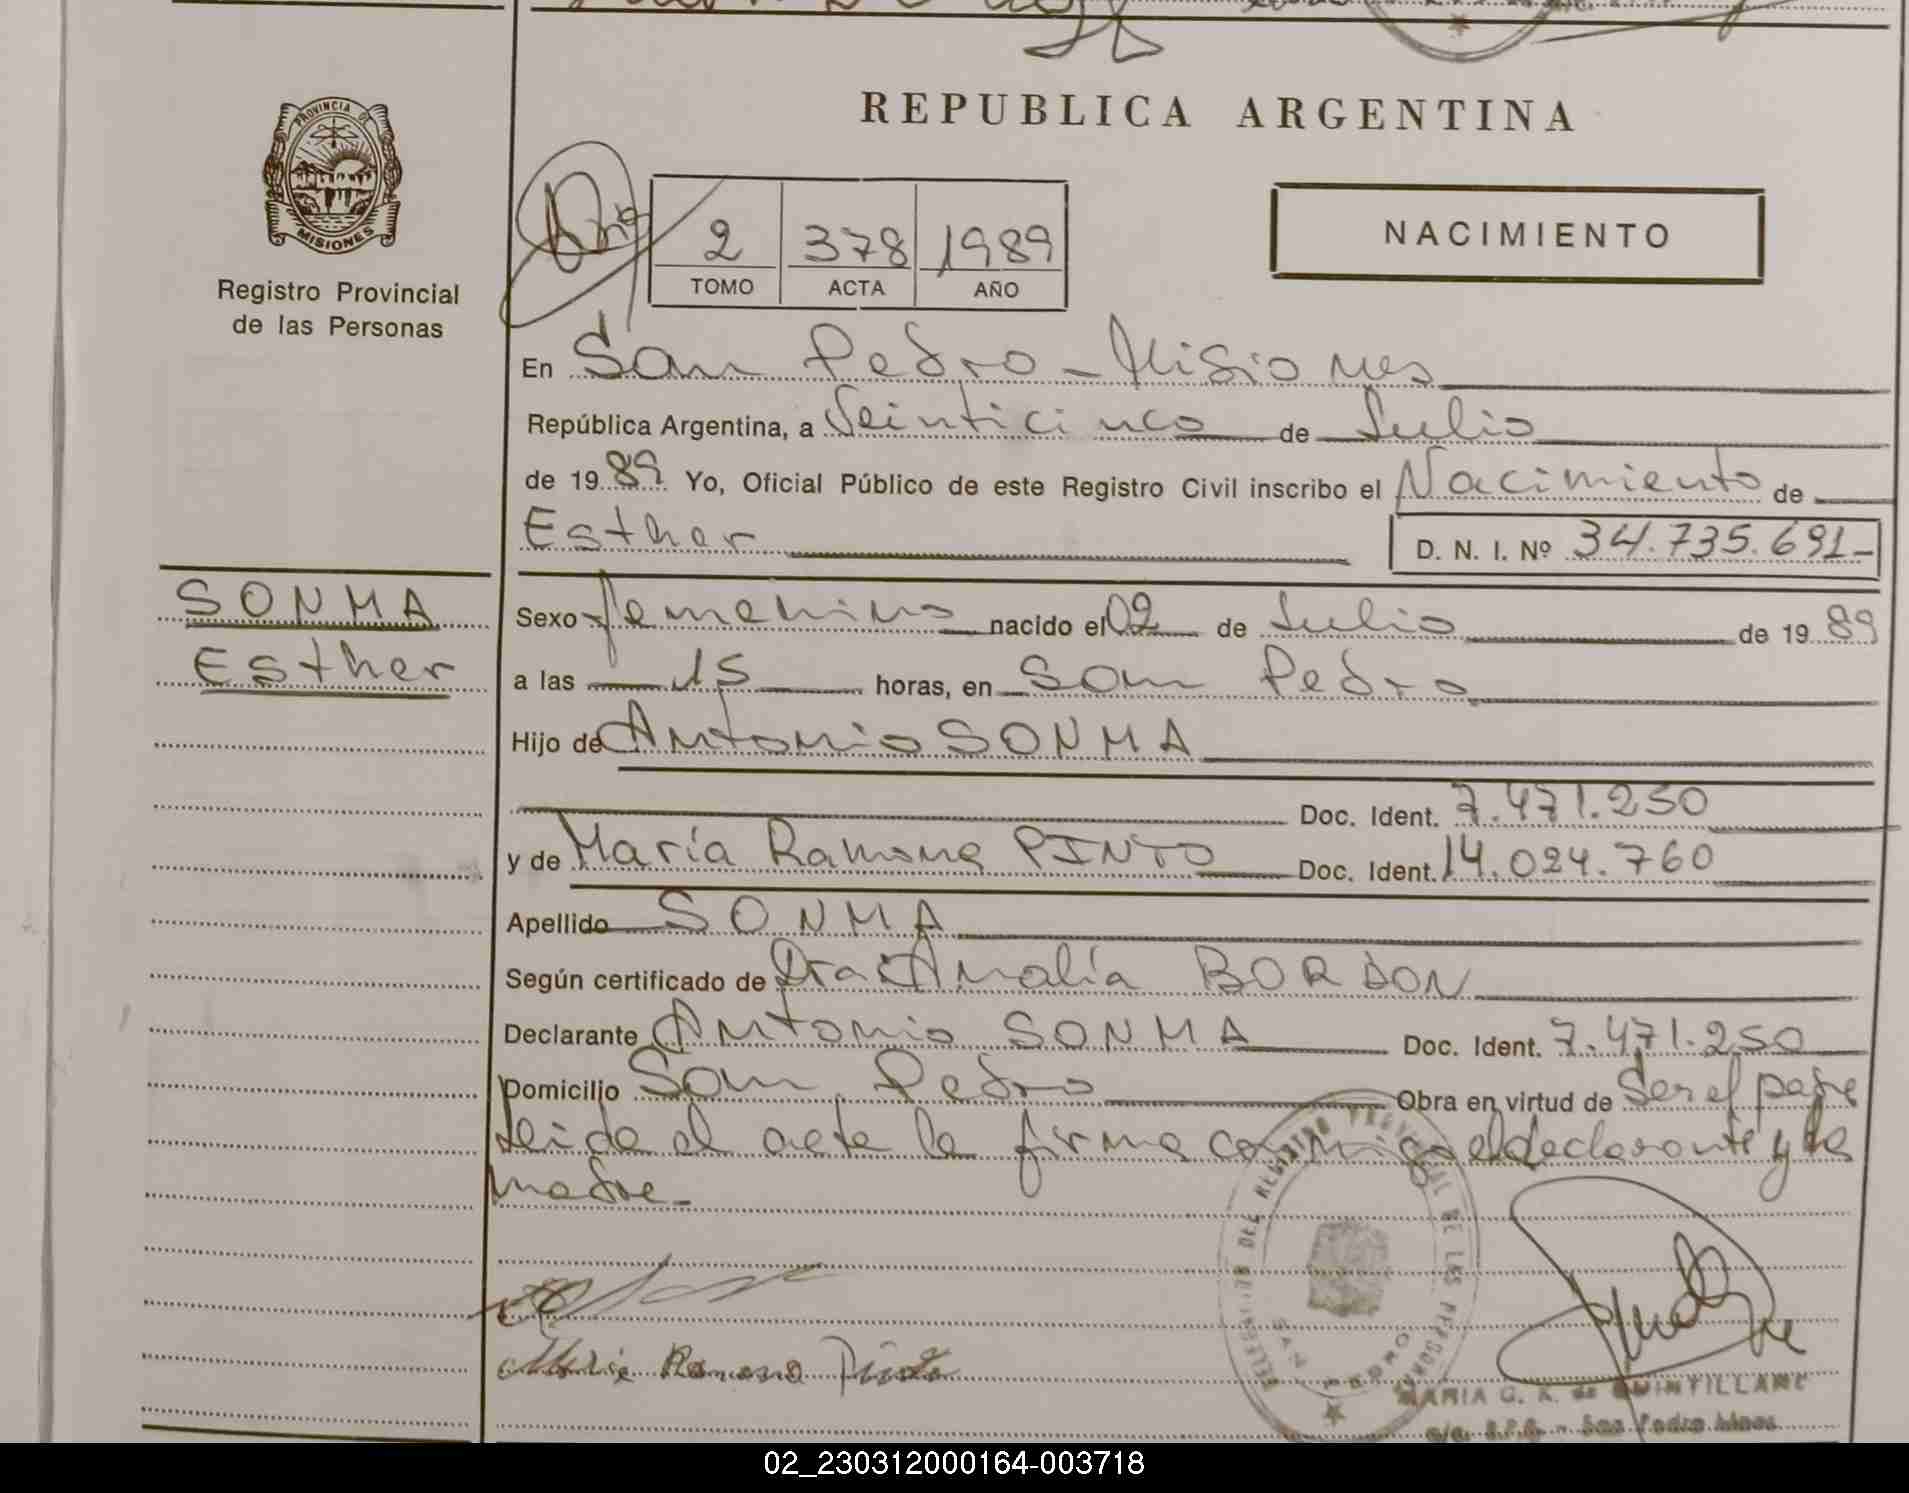 REPUBLICA ARGENTINA
PROVINCIA DE
MISIONES
Registro Provincial
de las Personas
2 378 1989
TOMO ACTA AÑO
NACIMIENTO
En San Pedro - Misiones
República Argentina, a Veinticinco de Julio
de 1989 Yo, Oficial Público de este Registro Civil inscribo el Nacimiento de
Esther D. N. I. Nº 34.735.691-
SONMA
Esther
Sexo femenino nacido el 02 de Julio de 1989
a las 15 horas, en San Pedro
Hijo de Antonio SONMA
Doc. Ident. 7.471.250
y de María Ramona PINTO Doc. Ident. 14.024.760
Apellido SONMA
Según certificado de Dra Amalía BORDON
Declarante Antonio SONMA Doc. Ident. 7.471.250
Domicilio San Pedro Obra en virtud de Ser el padre
Leida el acta la firma conmigo el declarante y la
madre-
María Ramona Pinto
DELEGACION DEL REGISTRO PROVINCIAL DE LAS PERSONAS
SAN PEDRO
MARIA G. K. de QUINTILLANE
San Pedro Mnes
02_230312000164-003718